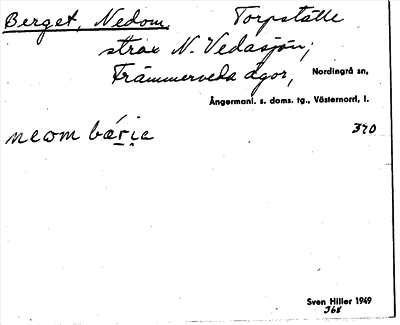 Berget, Nedom. Torpställe
strax N. Vedasjön,
Främmerveda ägor, Nordingrå sn,
Ångermanl. s. doms. tg., Västernorrl. l.
neom bǽri̯e 370
Sven Hiller 1949
368